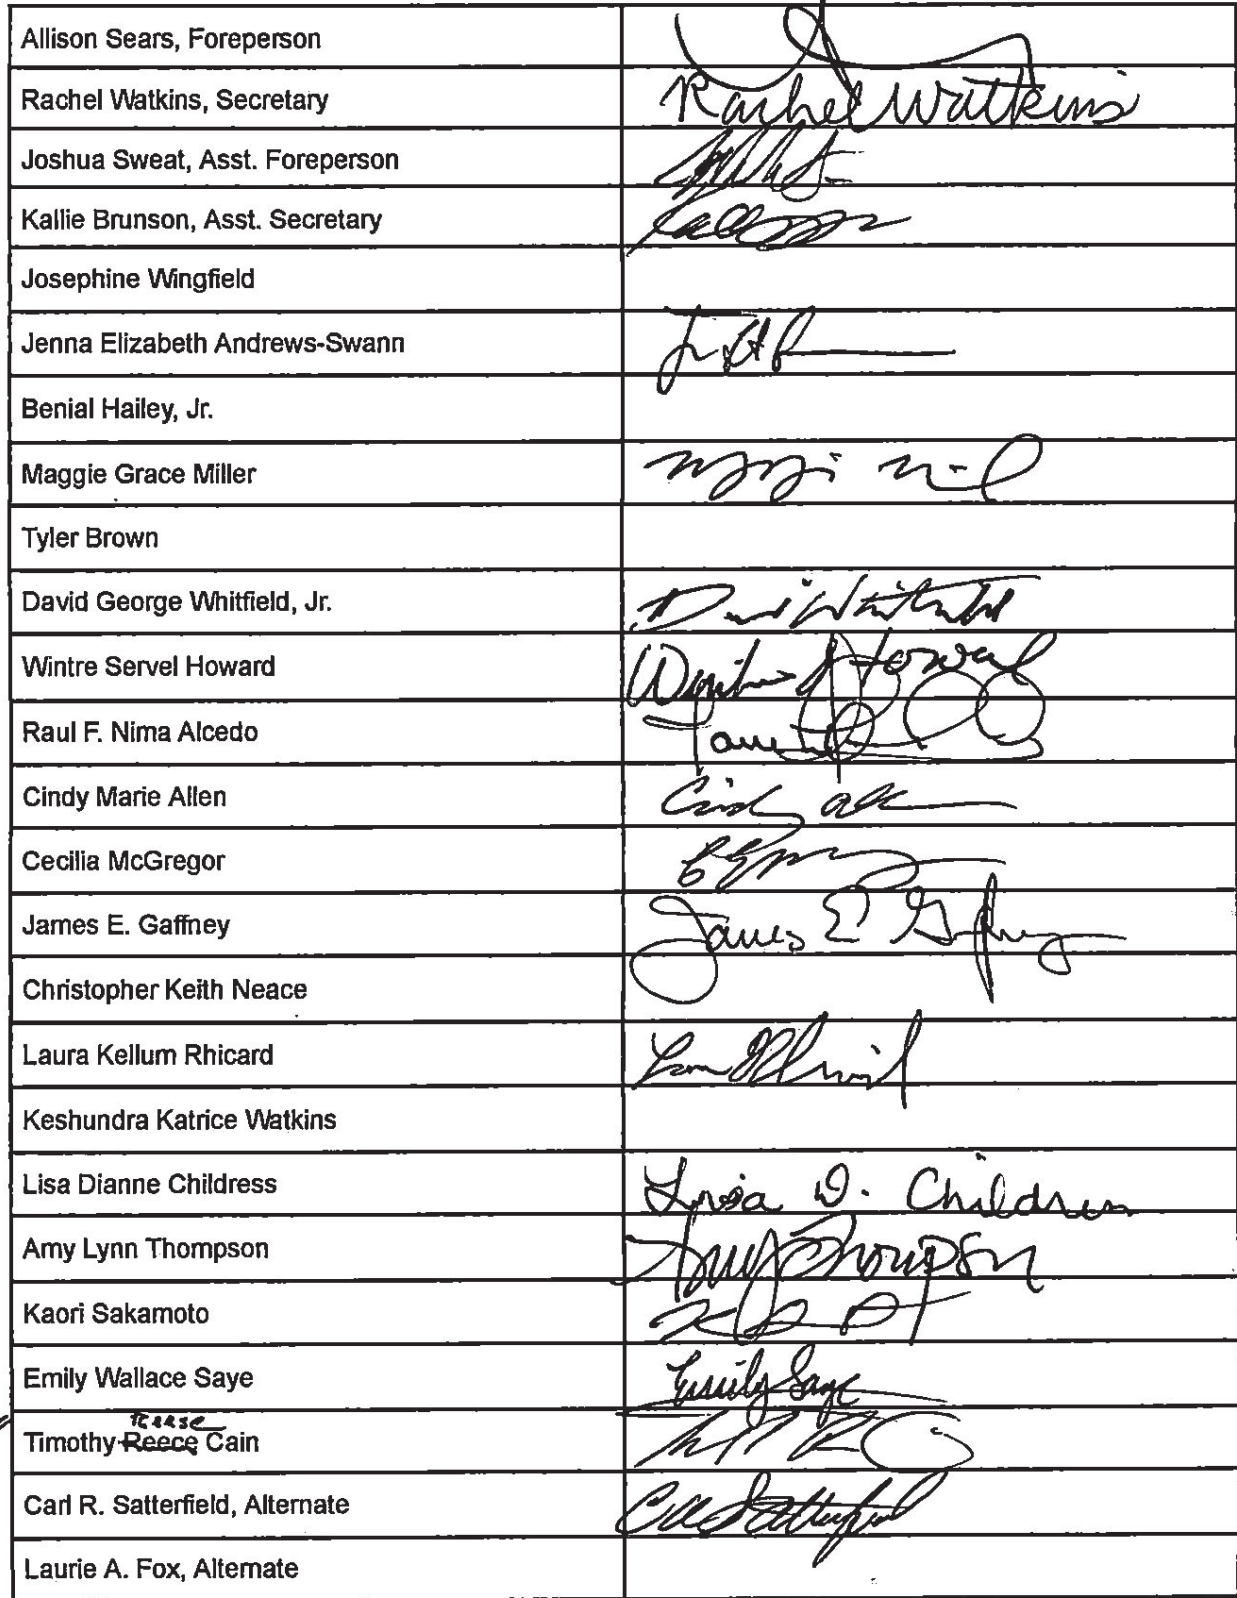 Allison Sears, Foreperson
Rachel Watkins, Secretary Rachel Watkins
Joshua Sweat, Asst. Foreperson
Kallie Brunson, Asst. Secretary
Josephine Wingfield
Jenna Elizabeth Andrews-Swann
Benial Hailey, Jr.
Maggie Grace Miller
Tyler Brown
David George Whitfield, Jr. David Whitfield
Wintre Servel Howard Howard
Raul F. Nima Alcedo
Cindy Marie Allen Cindy
Cecilia McGregor
James E. Gaffney James E Gaffney
Christopher Keith Neace
Laura Kellum Rhicard
Keshundra Katrice Watkins
Lisa Dianne Childress Lisa D. Childress
Amy Lynn Thompson Amy Thompson
Kaori Sakamoto
Emily Wallace Saye Emily Saye
Reese
Timothy Reece Cain
Carl R. Satterfield, Alternate Carl Satterfield
Laurie A. Fox, Alternate